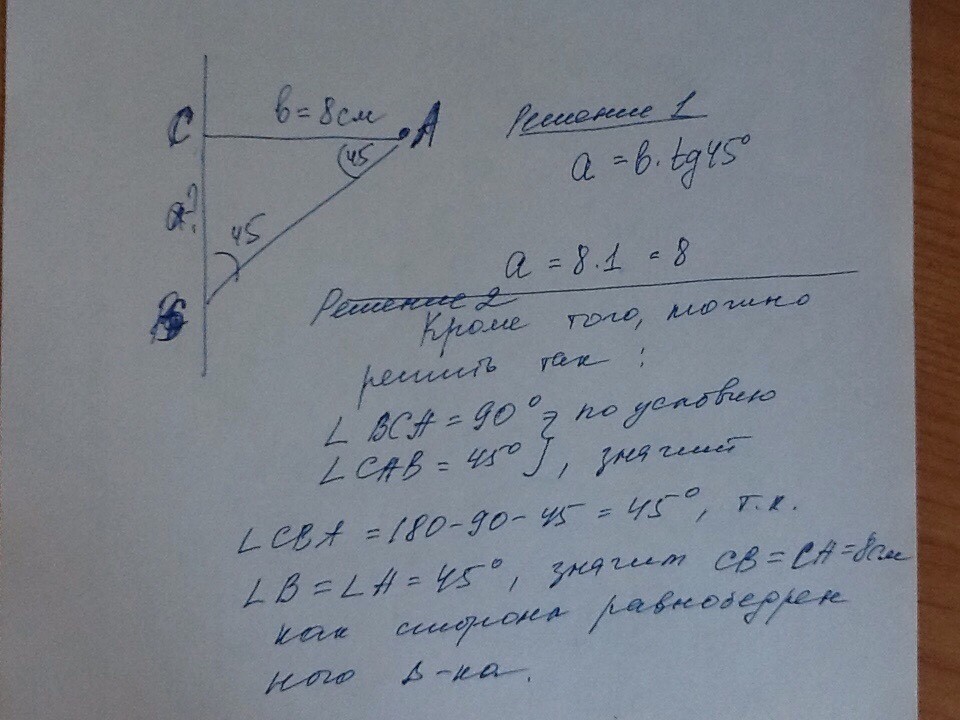 C
b = 8 см
A
45
a?
45
B
Решение 1
a = b · tg45°
a = 8 · 1 = 8
Решение 2
Кроме того, можно
решить так :
∠ BCA = 90° } по условию
∠ CAB = 45° } , значит
∠ CBA = 180 - 90 - 45 = 45°, т.к.
∠B = ∠A = 45°, значит CB = CA = 8см
как сторона равнобедрен
ного Δ-ка.